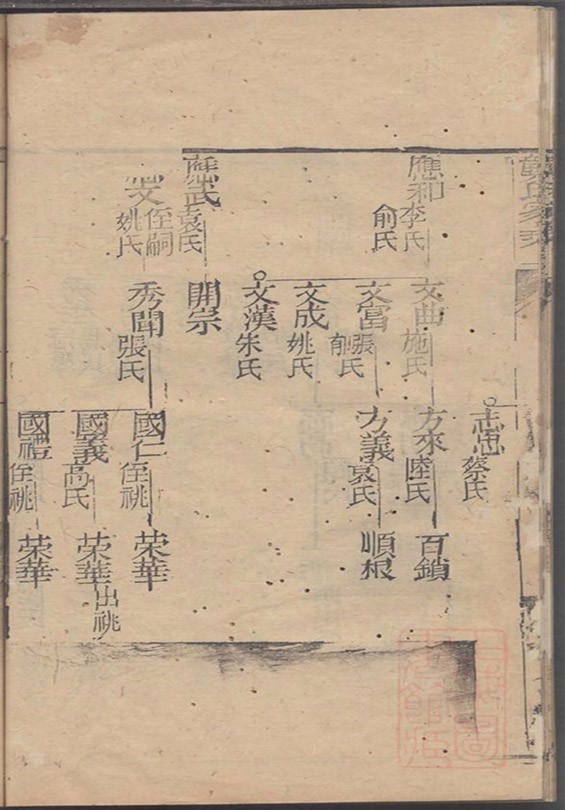 志忠 蔡氏
應和 李氏 俞氏
文曲 施氏
方來 陸氏
百鎖
文富 張氏 郁氏
方義 袁氏
順根
文成 姚氏
文漢 朱氏
應武 袁氏
開宗
文 侄嗣 姚氏
秀聞 張氏
國仁 侄祧
荣華
國義 高氏
荣華 出祧
國禮 侄祧
荣華